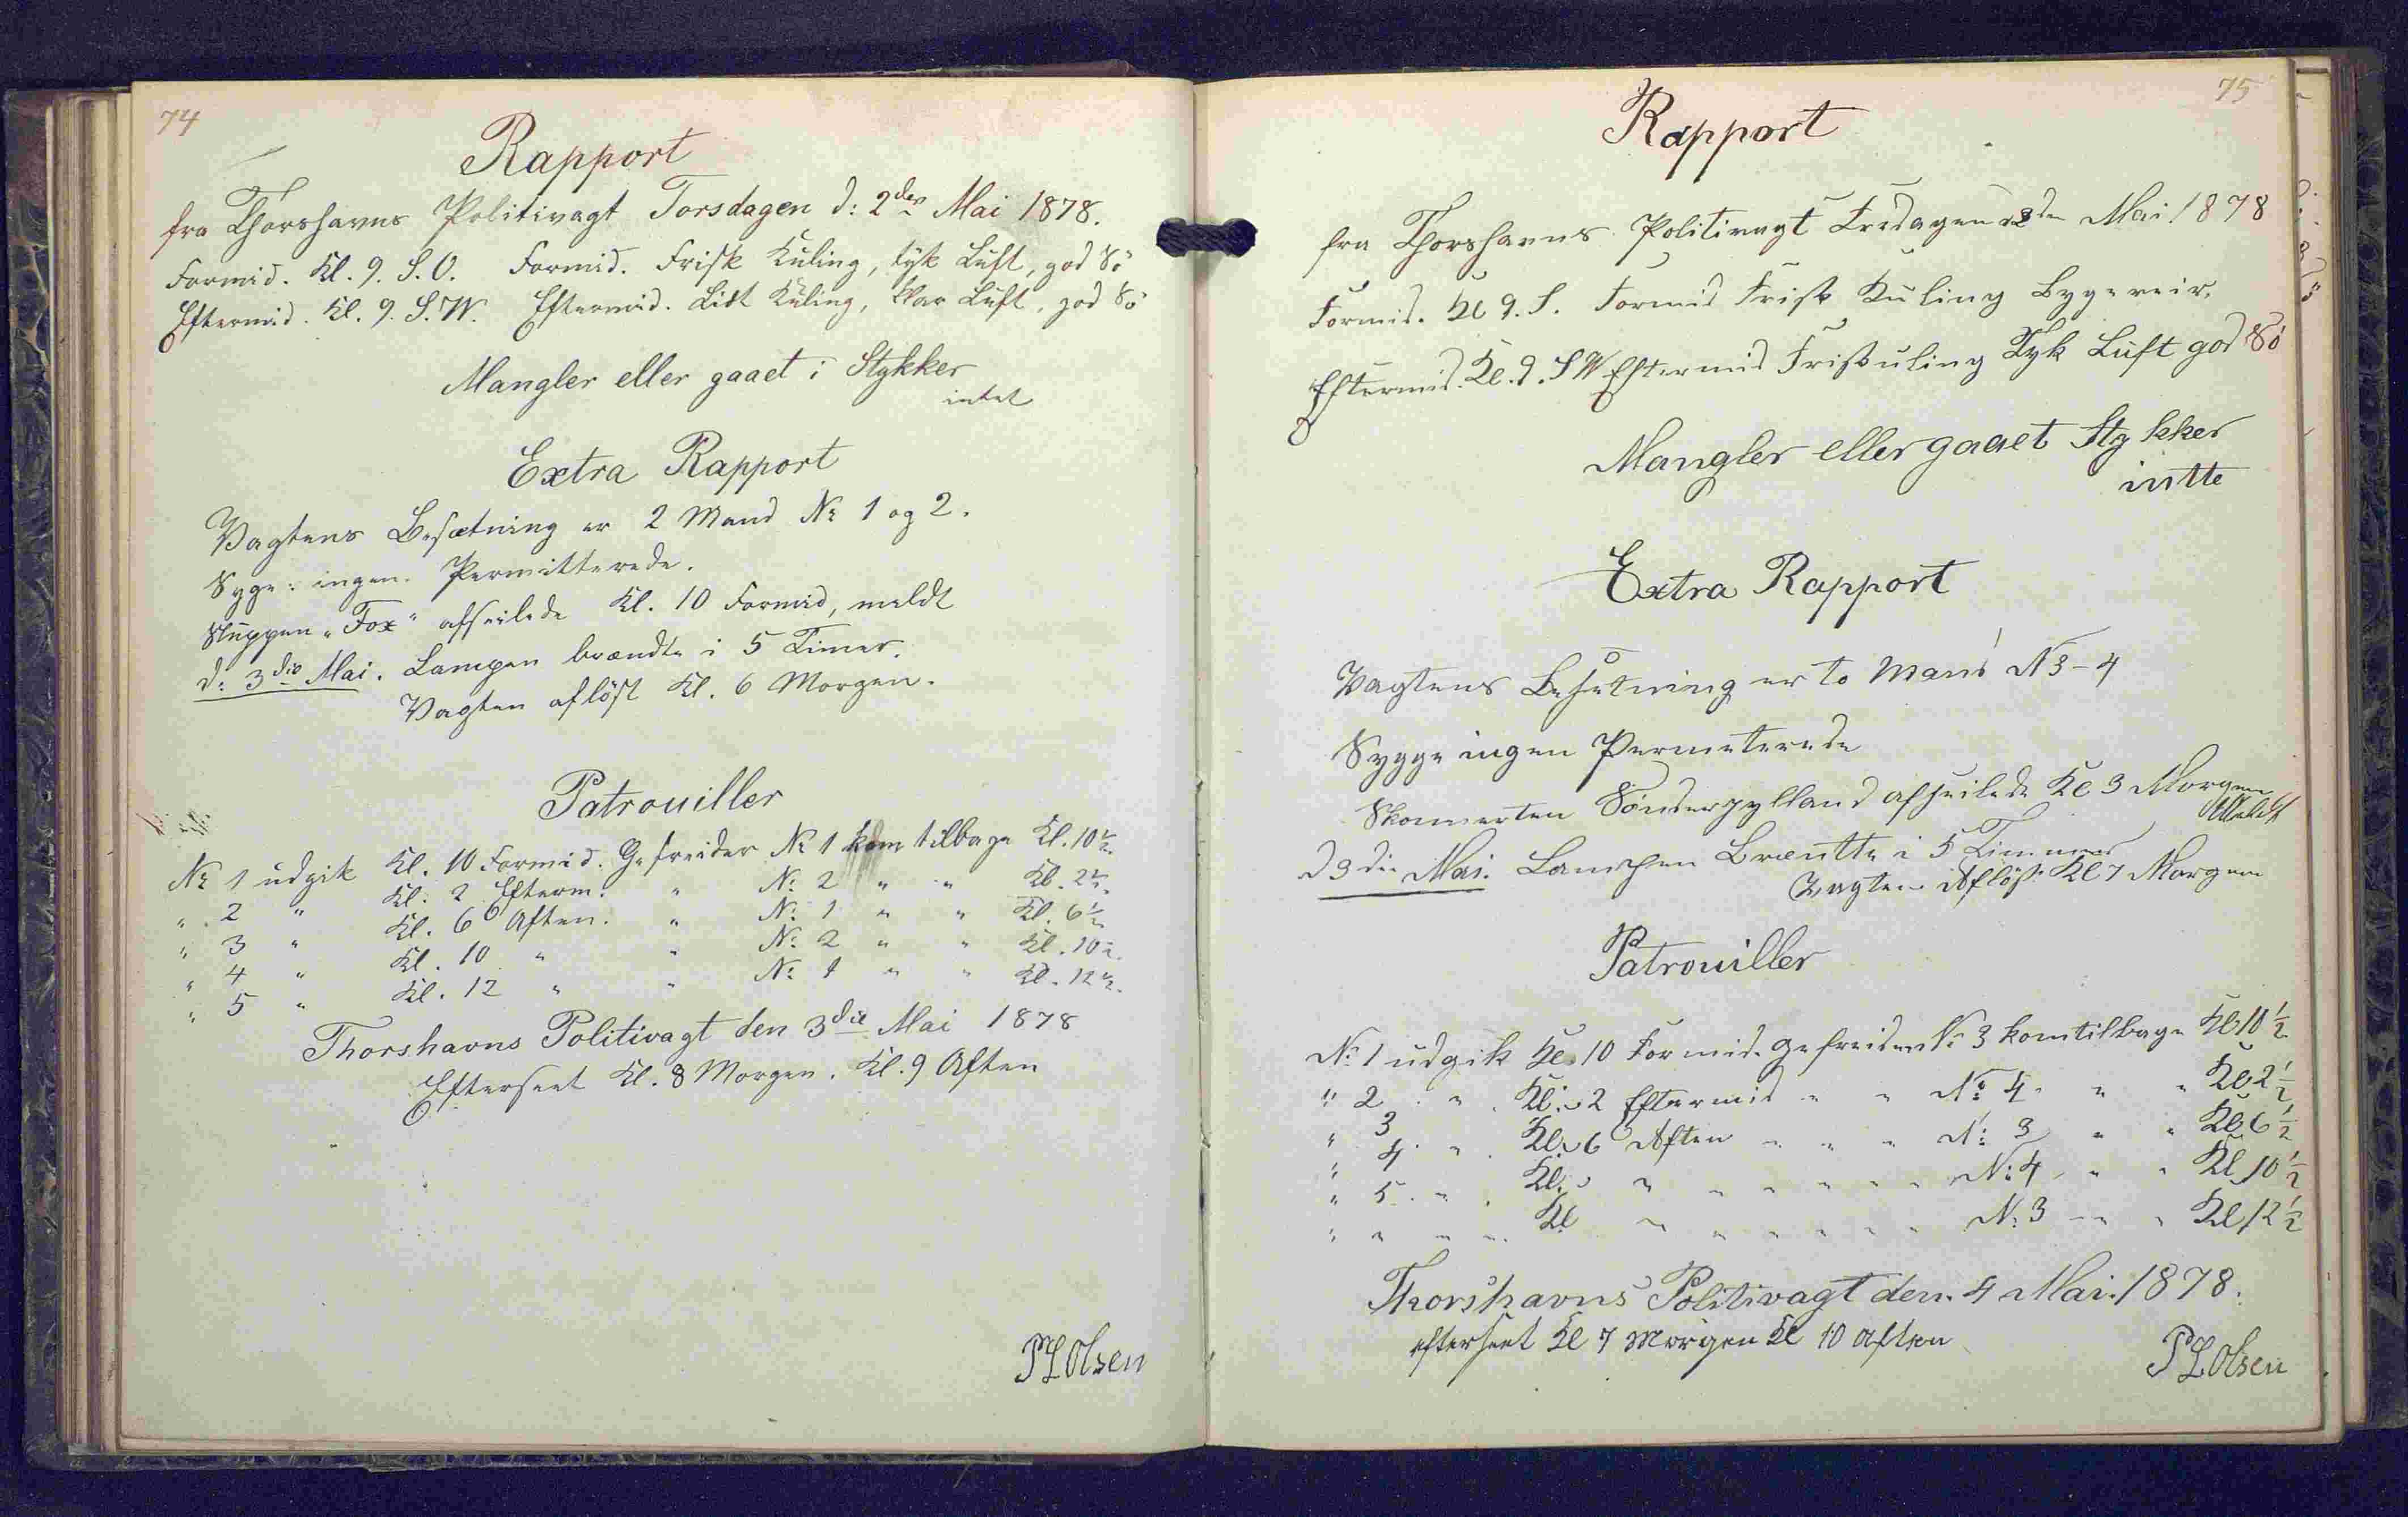 74
Rapport
fra Thorshavns Politivagt Torsdagen d: 2den Mai 1878.
Formid. Kl. 9. S.O. Formid. Frisk Kuling, tyk Luft, god Sö
Eftermid. Kl. 9. S.W. Eftermid. List Kuling, klar Luft, god Sö
Mangler eller gaaet i Stykker
intet
Extra Rapport
Vagtens Besætning er 2 Mand No 1 og 2.
Syge: ingen. Permitterede.
Sluppen "Fox" afseilede Kl. 10 Formid, meldt
d: 3die Mai. Lampen brændte i 5 Timer.
Vagten aflöst Kl. 6 Morgen.
Patrouiller
No 1 udgik Kl. 10 Formid. Gefreider No 1 kom tilbage Kl. 10½.
" 2 " Kl. 2 Efterm. " No 2 " " Kl. 2½.
" 3 " Kl. 6 Aften. " No 1 " " Kl. 6½
" 4 " Kl. 10 " " No 2 " " Kl. 10½.
" 5 " Kl. 12 " " No 1 " " Kl. 12½.
Thorshavns Politivagt den 3die Mai 1878
Efterseet Kl. 8 Morgen. Kl. 9 Aften
PLOlsen
75
Rapport
fra Thorshavns Politivagt Fredagen d 3de Mai 1878
Formid. Kl 9. S. Formid Frisk Kuling Bygeveir.
Eftermid. Kl. 9. SW Eftermid Friskuling Tyk Luft god Sö
Mangler eller gaaet Stykker
intte
Extra Rapport
Vagtens Besetning er to Mand N 3-4
Sygge ingen Permeterede
Skonnerten Sönderjylland afseilede Kl 3 Morgen
Meldt
D 3die Mai. Lampen Brentte i 5 Timmer
Vagten Aflöst Kl 7 Morgen
Patrouiller
No 1 udgik Kl. 10 Formid. gefreider No 3 komtilbage Kl 10½
" 2 " Kl. 2 Eftermid " " No 4 " " Kl 2½
" 3 " Kl. 6 Aften " " " No 3 " " Kl 6½
" 4 " Kl. " " " " " No 4 " " Kl 10½
" 5 " Kl " " " " " No 3 " " Kl 12½
Thorshavns Politivagt den. 4 Mai. 1878.
efterseet Kl 7 Morgen Kl 10 Aften
PLOlsen